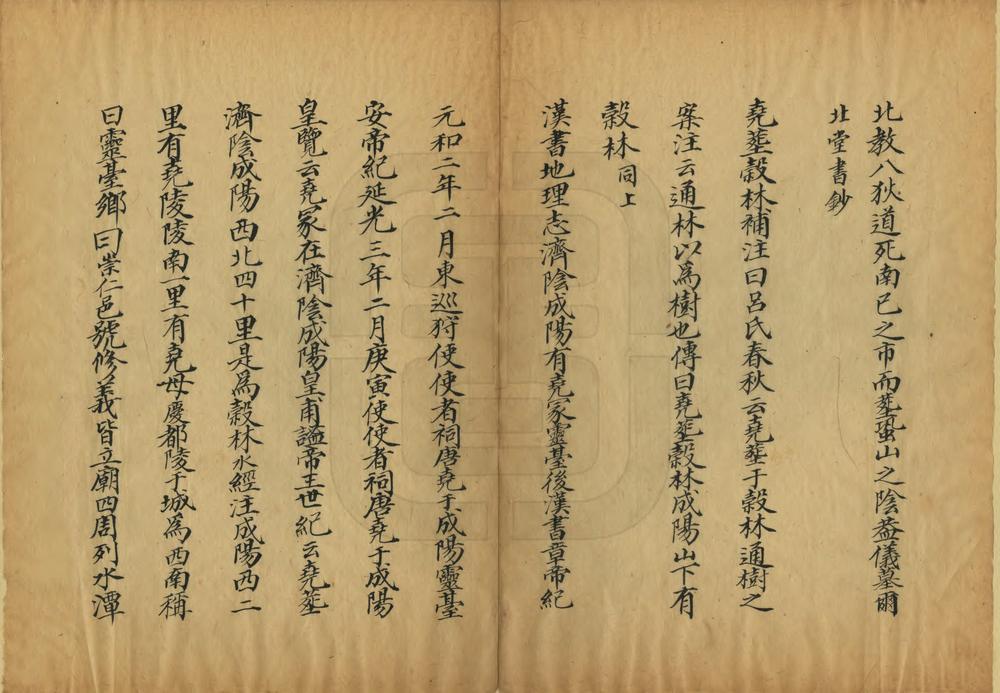 北教八狄道死南已之市而葬蛩山之陰葢儀墓爾
北堂書鈔
堯葬穀林補注曰呂氏春秋云堯葬于穀林通樹之
案注云通林以為樹也傳曰堯葬穀林成陽山下有
穀林同上
漢書地理志濟陰成陽有堯冢靈臺後漢書章帝紀
元和二年二月東巡狩使使者祠唐堯于成陽靈臺
安帝紀延光三年二月庚寅使使者祠唐堯于成陽
皇覽云堯冢在濟陰成陽皇甫謐帝王世紀云堯葬
濟陰成陽西北四十里是為穀林水經注成陽西二
里有堯陵陵南一里有堯母慶都陵于城為西南稱
曰靈臺鄉曰崇仁邑號修義皆立廟四周列水潭